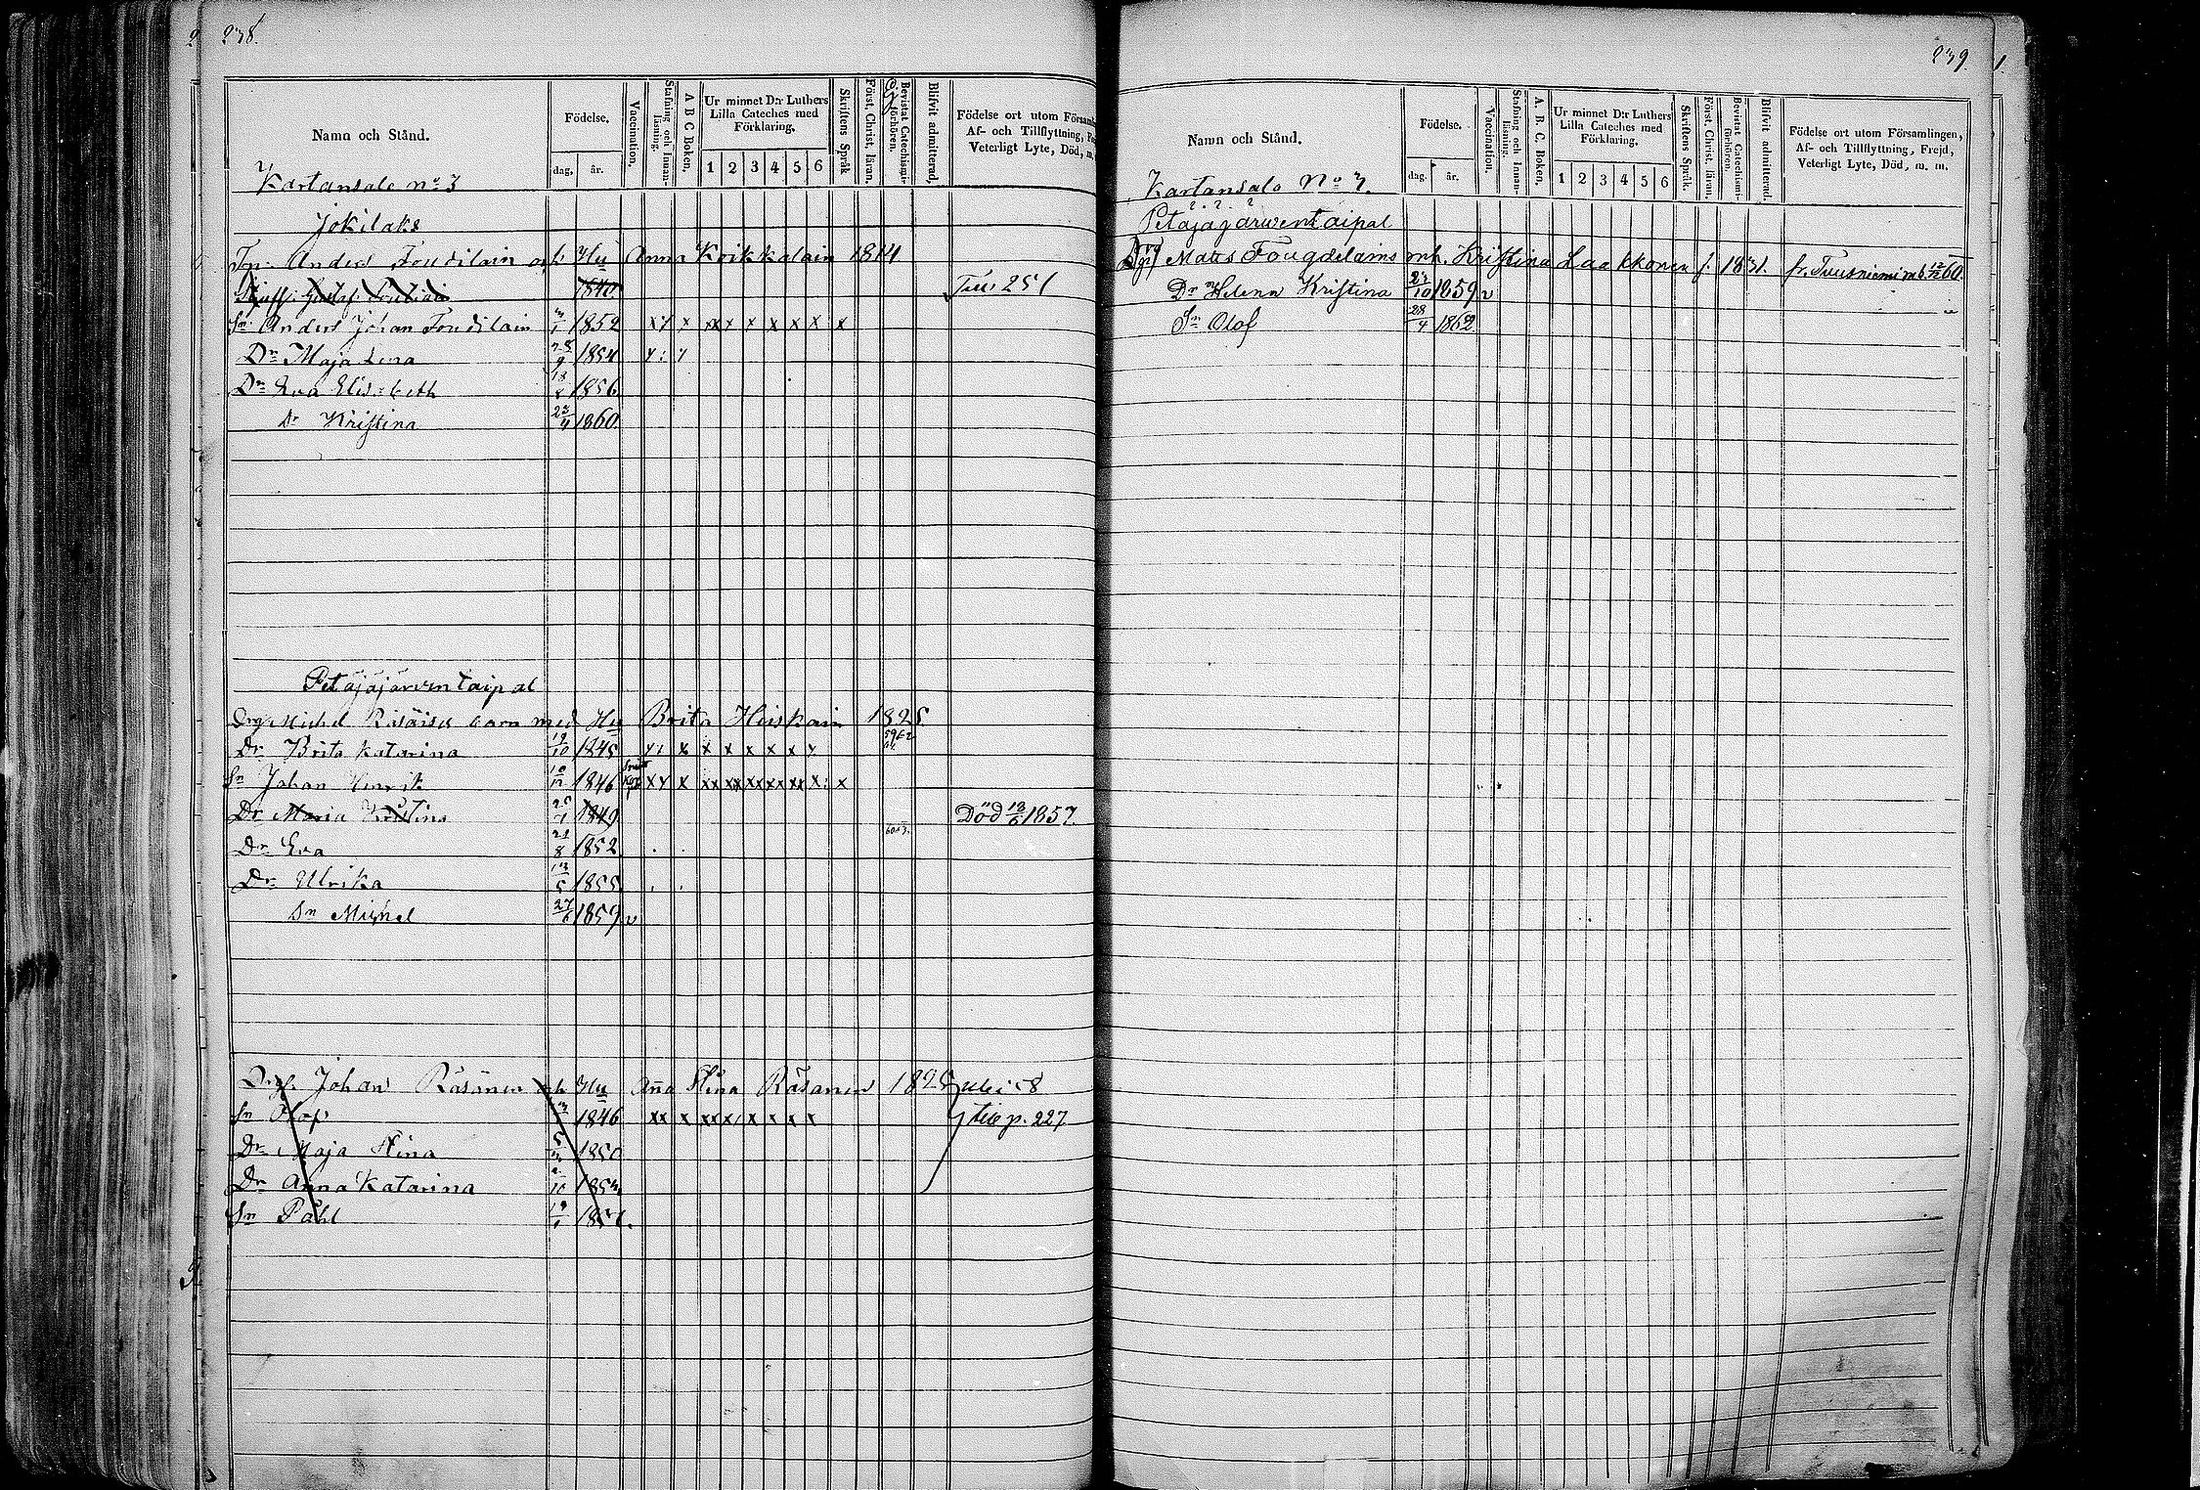 238.
Namn och Stånd.
Födelse.
dag, år.
Vaccination,
Stafning och Innanläsning.
A B C Boken,
Ur minnet D:r Luthers Lilla Cateches med Förklaring,
1 2 3 4 5 6
Skriftens Språk
Först. Christ. läran,
Bevistat Catechismi-förhören.
Blifvit admitterad,
Födelse ort utom Församl
Af- och Tillflyttning, Fr
Veterligt Lyte, Död, m.
Kartansalo no 3
Jokilaks
Anders Foudilain Hu Anna Koikkalain 1814
Gustaf 1840 251
Sn Anders Johan Foudilain 1852 x x x xx x x x x x x
Dr Maja Lena 9 1854
Dr Eva Elisabeth 18 1856
Dr Kristina 23/4 1860
Petäjäjärventaipal
Michel Räsäises barn med Hu Brita Heiskain 182
Dr Brita Katarina 19/10 1845 x x x x x x
Sn Johan Henrik 1846 x x x xx xx xx xx xx x x
Dr Maria Kristina 1849 Död 12/6 1857.
Dr Eva 21/8 1852
Dr Ulrika 13/5 1855
Sn Michel 27/6 1859 v
Johan Räsänen Hu Aña Stina Räsänen 182
Sn Olof 1846 xx x xxx x x x x p. 227
Dr Maja Stina 1850
Dr Anna Katarina 10 185
Sn Påhl 185
239.
Namn och Stånd.
Födelse.
dag. år.
Vaccination.
Stafning och Innanläsning.
A. B. C. Boken.
Ur minnet D:r Luthers Lilla Cateches med Förklaring,
1 2 3 4 5 6
Skriftens Språk.
Först. Christ. läran.
Bevistat Catechismi-förhören.
Blifvit admitterad.
Födelse ort utom Församlingen,
Af- och Tillflyttning, Frejd,
Veterligt Lyte, Död, m. m.
Kartansalo No 3.
Petäjäjärwentaipal
Matts Fougdelains mh. Kristina Laakkonen f. 1831. fr. Tuusniemi mb 60.
Dr Helena Kristina 23/10 1859 v
Sn Olof 28/4 1862